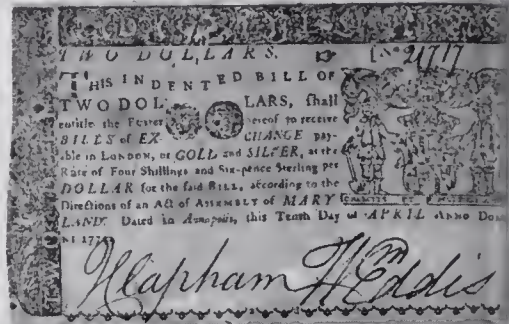 TWO DOLLARS. [No 21717
THIS INDENTED BILL OF
TWO DOL LARS, shall
entitle the Bearer hereof to receive
BILLS of EX- CHANGE pay-
able in LONDON, or GOLD and SILVER, at the
Rate of Four Shillings and Six-pence Sterling per
DOLLAR for the said BILL, according to the
Directions of an Act of ASSEMBLY of MARY
LAND. Dated in Annapolis, this Tenth Day of APRIL ANNO DOM
NI
Clapham Wm Eddis